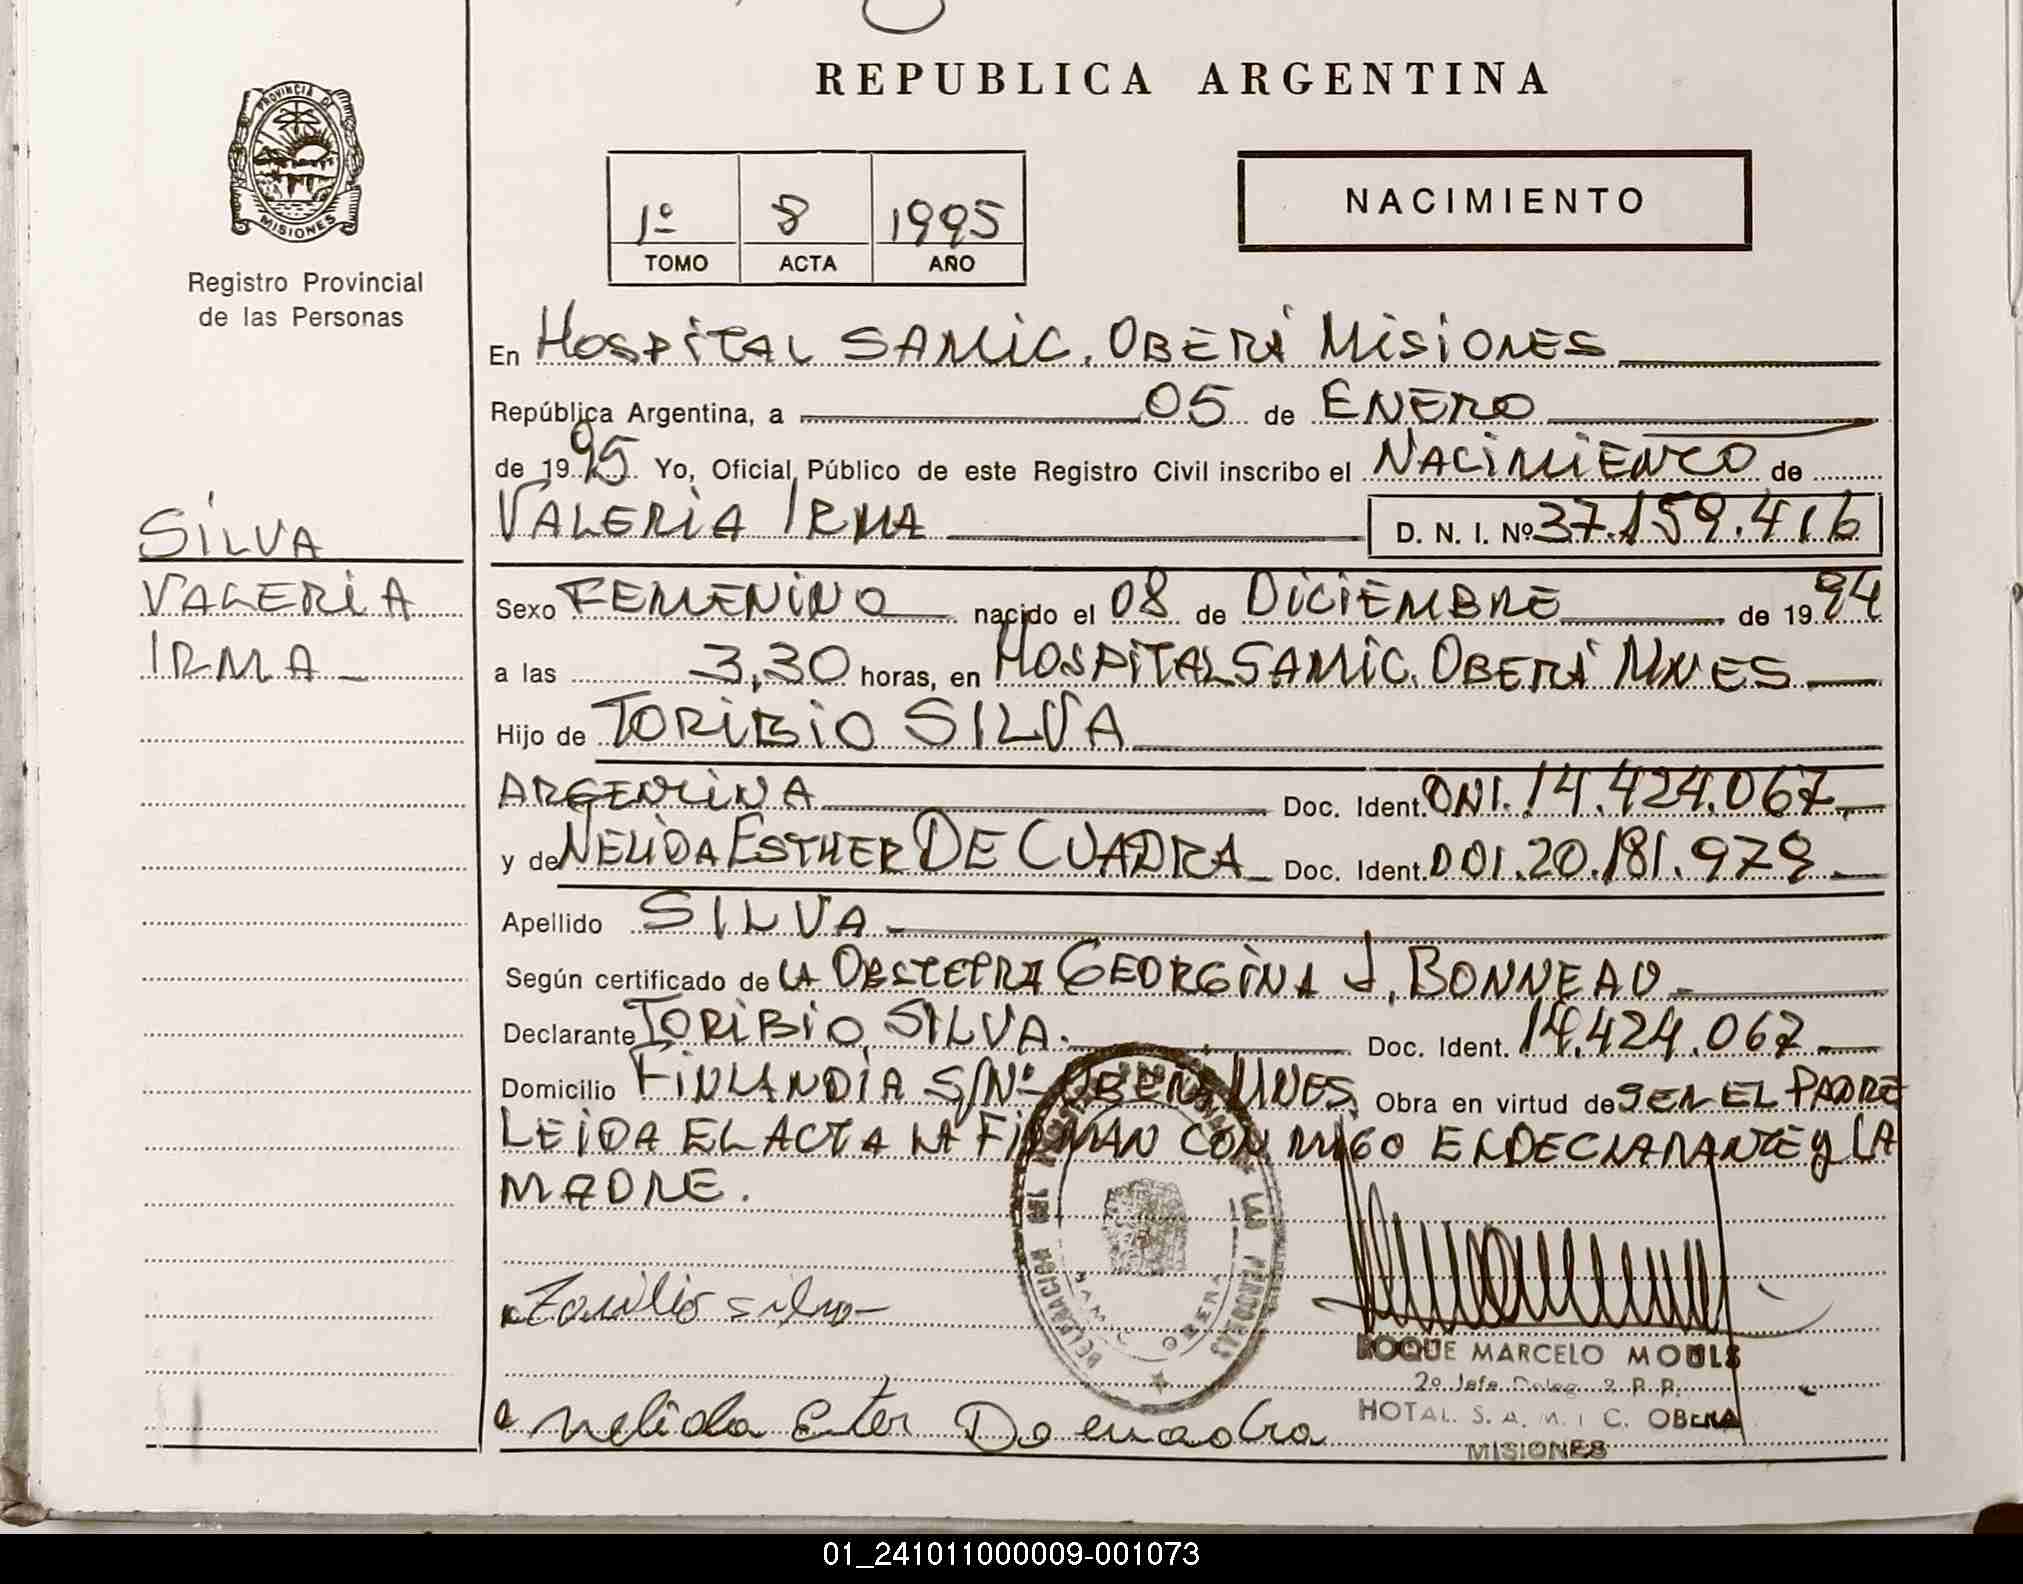 REPUBLICA ARGENTINA
PROVINCIA DE
MISIONES
Registro Provincial
de las Personas
1º 8 1995
TOMO ACTA AÑO
NACIMIENTO
En HOSPITAL SAMIC. OBERÁ MISIONES
República Argentina, a 05 de ENERO
de 1995 Yo, Oficial Público de este Registro Civil inscribo el NACIMIENTO de
SILVA
VALERIA
IRMA
VALERIA IRMA D. N. I. Nº 37.159.416
Sexo FEMENINO nacido el 08 de DICIEMBRE de 1994
a las 3,30 horas, en HOSPITAL SAMIC. OBERÁ MNES
Hijo de TORIBIO SILVA
ARGENTINA Doc. Ident. DNI. 14.424.067
y de NELIDA ESTHER DE CUADRA Doc. Ident. DNI. 20.181.979
Apellido SILVA
Según certificado de LA OBSTETRA GEORGINA J. BONNEAU
Declarante TORIBIO SILVA. Doc. Ident. 14.424.067
Domicilio FINLANDIA S/Nº OBERÁ MNES. Obra en virtud de SER EL PADRE
LEIDA EL ACTA LA FIRMAN CONMIGO EL DECLARANTE y LA
MADRE.
DELEGACION
OBERA
ROQUE MARCELO
2º Jefe
HOTAL. S. A. M. I C. OBERA
MISIONES
Nelida Ester De cuadra
01_241011000009-001073